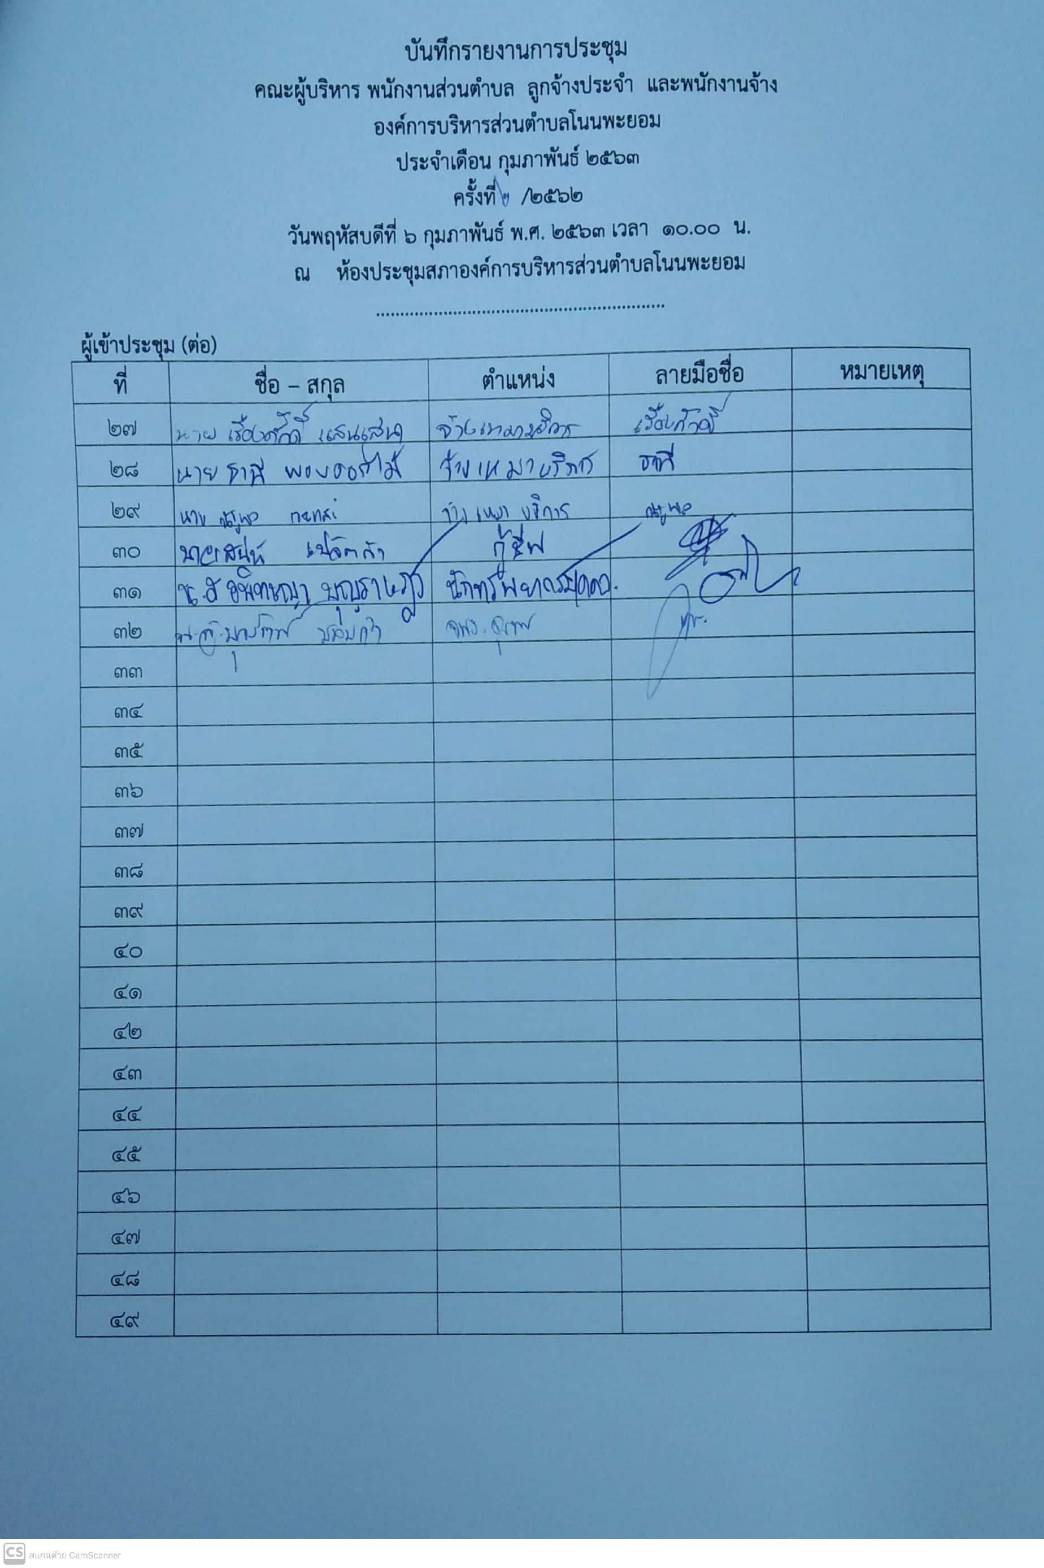 บันทึกรายงานการประชุม
คณะผู้บริหาร พนักงานส่วนตำบล ลูกจ้างประจำ และพนักงานจ้าง
องค์การบริหารส่วนตำบลโนนพะยอม
ประจำเดือน กุมภาพันธ์ ๒๕๖๓
ครั้งที่ ๒ /๒๕๖๒
วันพฤหัสบดีที่ ๖ กุมภาพันธ์ พ.ศ. ๒๕๖๓ เวลา ๑๐.๐๐ น.
ณ ห้องประชุมสภาองค์การบริหารส่วนตำบลโนนพะยอม
............................................................
ผู้เข้าประชุม (ต่อ)
ที่ ชื่อ – สกุล ตำแหน่ง ลายมือชื่อ หมายเหตุ
๒๗ นาย เรืองศักดิ์ แสนเสนา จ้างเหมาบริการ เรืองศักดิ์
๒๘ นาย ธานี จ้างเหมาบริการ ธานี
๒๙ นาย จ้างเหมาบริการ
๓๐ กู้ชีพ
๓๑ น.ส นักทรัพยากรบุคคล.
๓๒
๓๓
๓๔
๓๕
๓๖
๓๗
๓๘
๓๙
๔๐
๔๑
๔๒
๔๓
๔๔
๔๕
๔๖
๔๗
๔๘
๔๙
CS สแกนด้วย CamScanner